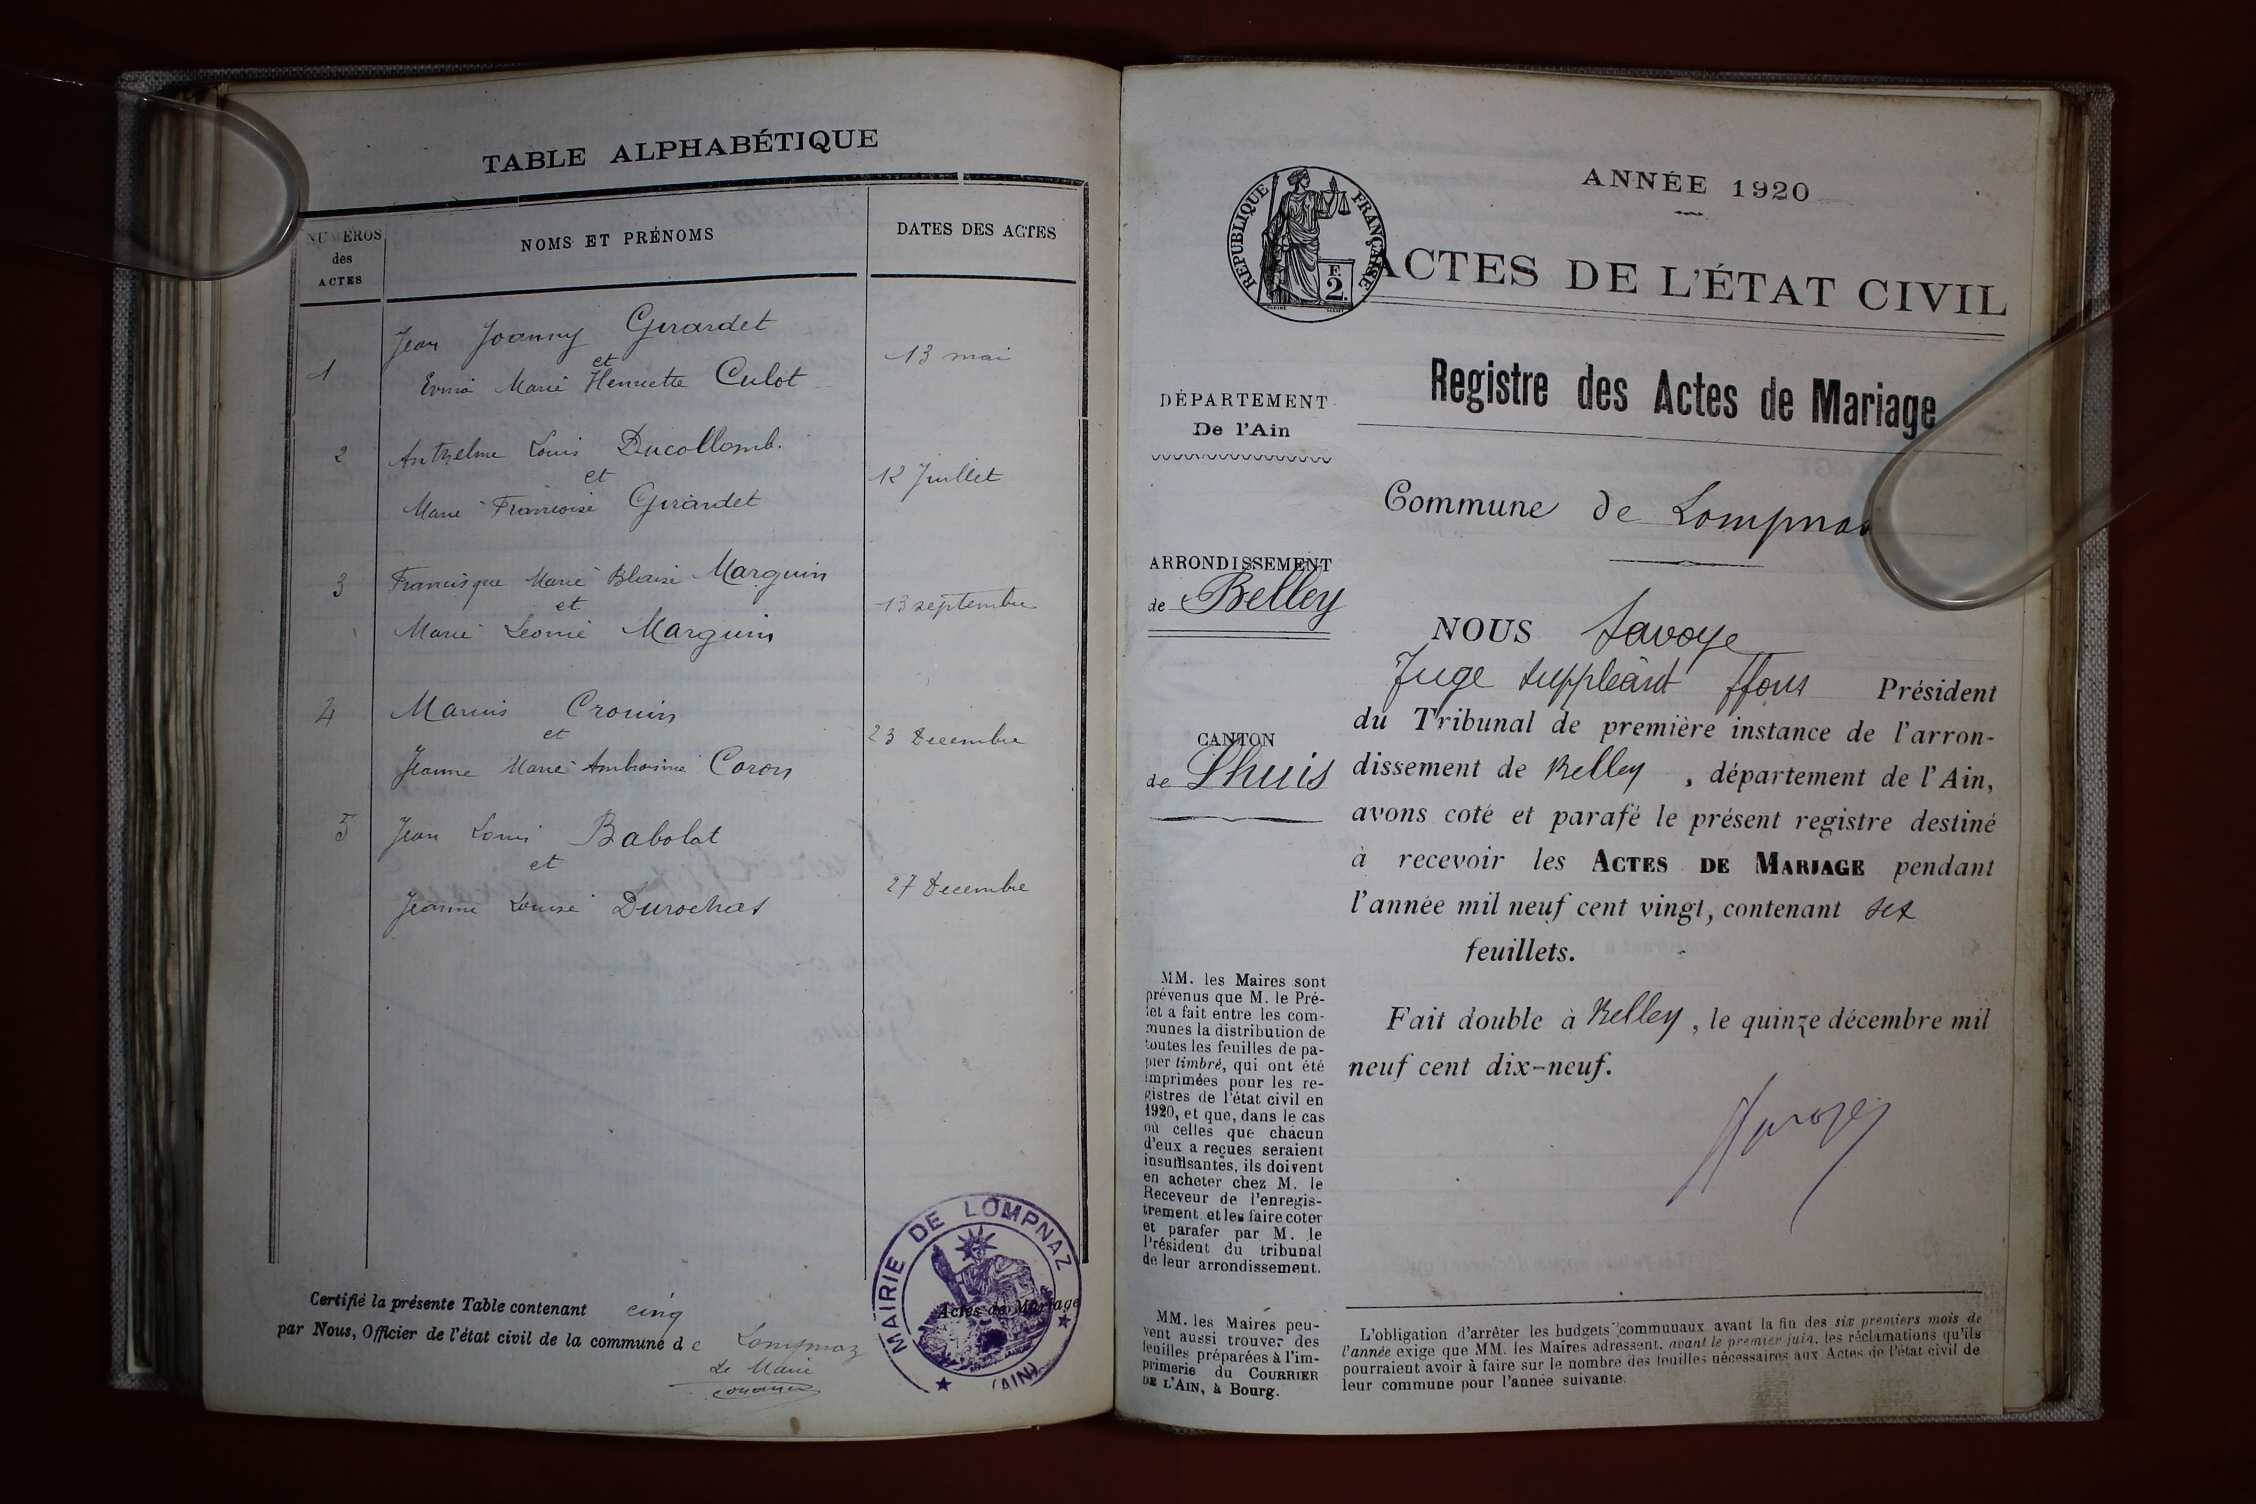 TABLE ALPHABÉTIQUE
NUMÉROS
des
ACTES
NOMS ET PRÉNOMS
DATES DES ACTES
Jean Joanny Girardet
et
1
13 mai
Marie Henriette Culot
2
Anthelme Louis Ducollomb.
et
12 Juillet
Marie Françoise Girardet
3
Francisque Marie Blaise Marguin
et
13 septembre
Marie Léonie Marguin
4
Marius Crouin
et
23 Decembre
Jeanne Marie Ambroisine Caron
5
Jean Louis Babolat
et
27 Decembre
Jeanne Louise Durochat
Certifié la présente Table contenant cinq Actes de Mariage
par Nous, Officier de l'état civil de la commune de Lompnaz
Le Maire
MAIRIE DE LOMPNAZ
(AIN)
ANNÉE 1920
RÉPUBLIQUE FRANÇAISE
F.
2.
ACTES DE L'ÉTAT CIVIL
Registre des Actes de Mariage
DÉPARTEMENT
De l'Ain
Commune de Lompnas
ARRONDISSEMENT
de Belley
CANTON
de Lhuis
NOUS Savoye
Juge suppléant ffons Président
du Tribunal de première instance de l'arron-
dissement de Belley, département de l'Ain,
avons coté et parafé le présent registre destiné
à recevoir les ACTES DE MARIAGE pendant
l'année mil neuf cent vingt, contenant six
feuillets.
Fait double à Belley, le quinze décembre mil
neuf cent dix-neuf.
Savoye
MM. les Maires sont
prévenus que M. le Pré-
fet a fait entre les com-
munes la distribution de
toutes les feuilles de pa-
pier timbré, qui ont été
imprimées pour les re-
gistres de l'état civil en
1920, et que, dans le cas
où celles que chacun
d'eux a reçues seraient
insuffisantes, ils doivent
en acheter chez M. le
Receveur de l'enregis-
trement et les faire coter
et parafer par M. le
Président du tribunal
de leur arrondissement.
MM. les Maires peu-
vent aussi trouver des
feuilles préparées à l'im-
primerie du COURRIER
DE L'AIN, à Bourg.
L'obligation d'arrêter les budgets communaux avant la fin des six premiers mois de
l'année exige que MM. les Maires adressent, avant le premier juin, les réclamations qu'ils
pourraient avoir à faire sur le nombre des feuilles nécessaires aux Actes de l'état civil de
leur commune pour l'année suivante.